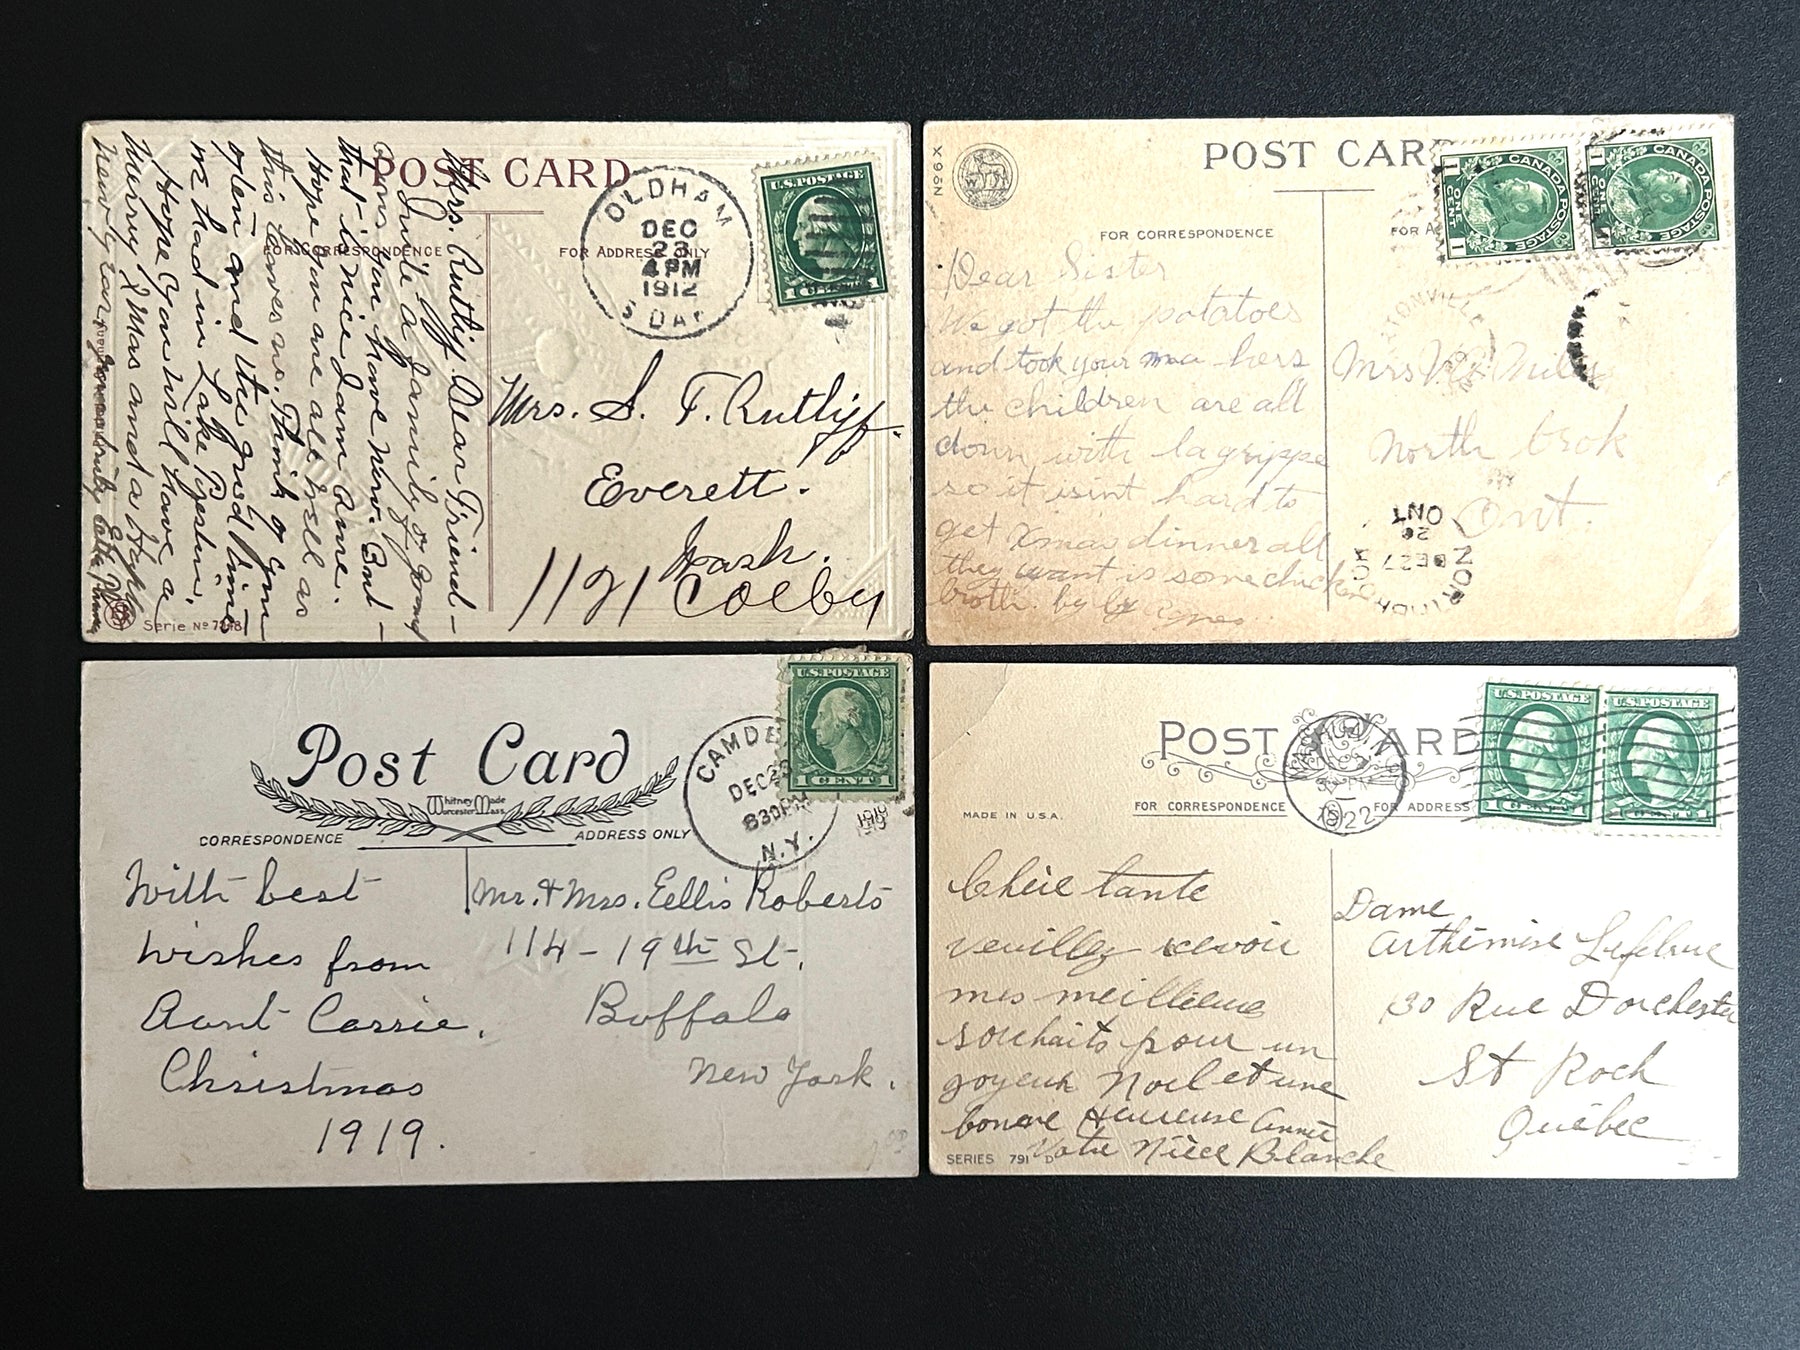 POST CARD
FOR CORRESPONDENCE
FOR ADDRESS ONLY
OLDHAM
DEC
23
4 PM
1912
S DAK
U.S. POSTAGE
1 CENT 1
Mrs. Rutliff Dear Friend –
Quite a family of
Sons you have now. But –
that is nice I am
Hope you are all well as
this leaves us. Think of you
often and the good times
we had in Lake
Hope you will have a
Merry X Mas and a Happy
New Year
Mrs. S. F. Rutliff
Everett.
Wash.
1121 Colby
Serie No 7248
No 6 X
POST CARD
FOR CORRESPONDENCE
FOR A
CANADA POSTAGE
1 ONE CENT 1
CANADA POSTAGE
1 ONE CENT 1
Dear Sister
We got the potatoes
and took your ma hers
the children are all
down with la grippe
so it isint hard to
get Xmas dinner all
they want is some chicken
broth. by by Agnes
Mrs
North brok
Ont.
ONT
26
DE 27
Post Card
Whitney Made
Worcester Mass.
CORRESPONDENCE
ADDRESS ONLY
CAMDE
DEC 2
830 PM
N.Y.
1919
U.S. POSTAGE
1 CENT 1
With best
wishes from
Aunt Carrie.
Christmas
1919.
Mr. & Mrs. Eellis Roberts
114 – 19th St.
Buffalo
New York.
POST CARD
MADE IN U.S.A.
FOR CORRESPONDENCE
FOR ADDRESS
NASHUA
1922
U.S. POSTAGE
U.S. POSTAGE
Chère tante
veuillez recevoir
mes meilleures
souhaits pour un
joyeux Noel et une
bonne Heureuse Année
Votre Nièce Blanche
Dame
Arthémise Lefebvre
30 Rue Dorchester
St Roch
Québec
SERIES 791 D